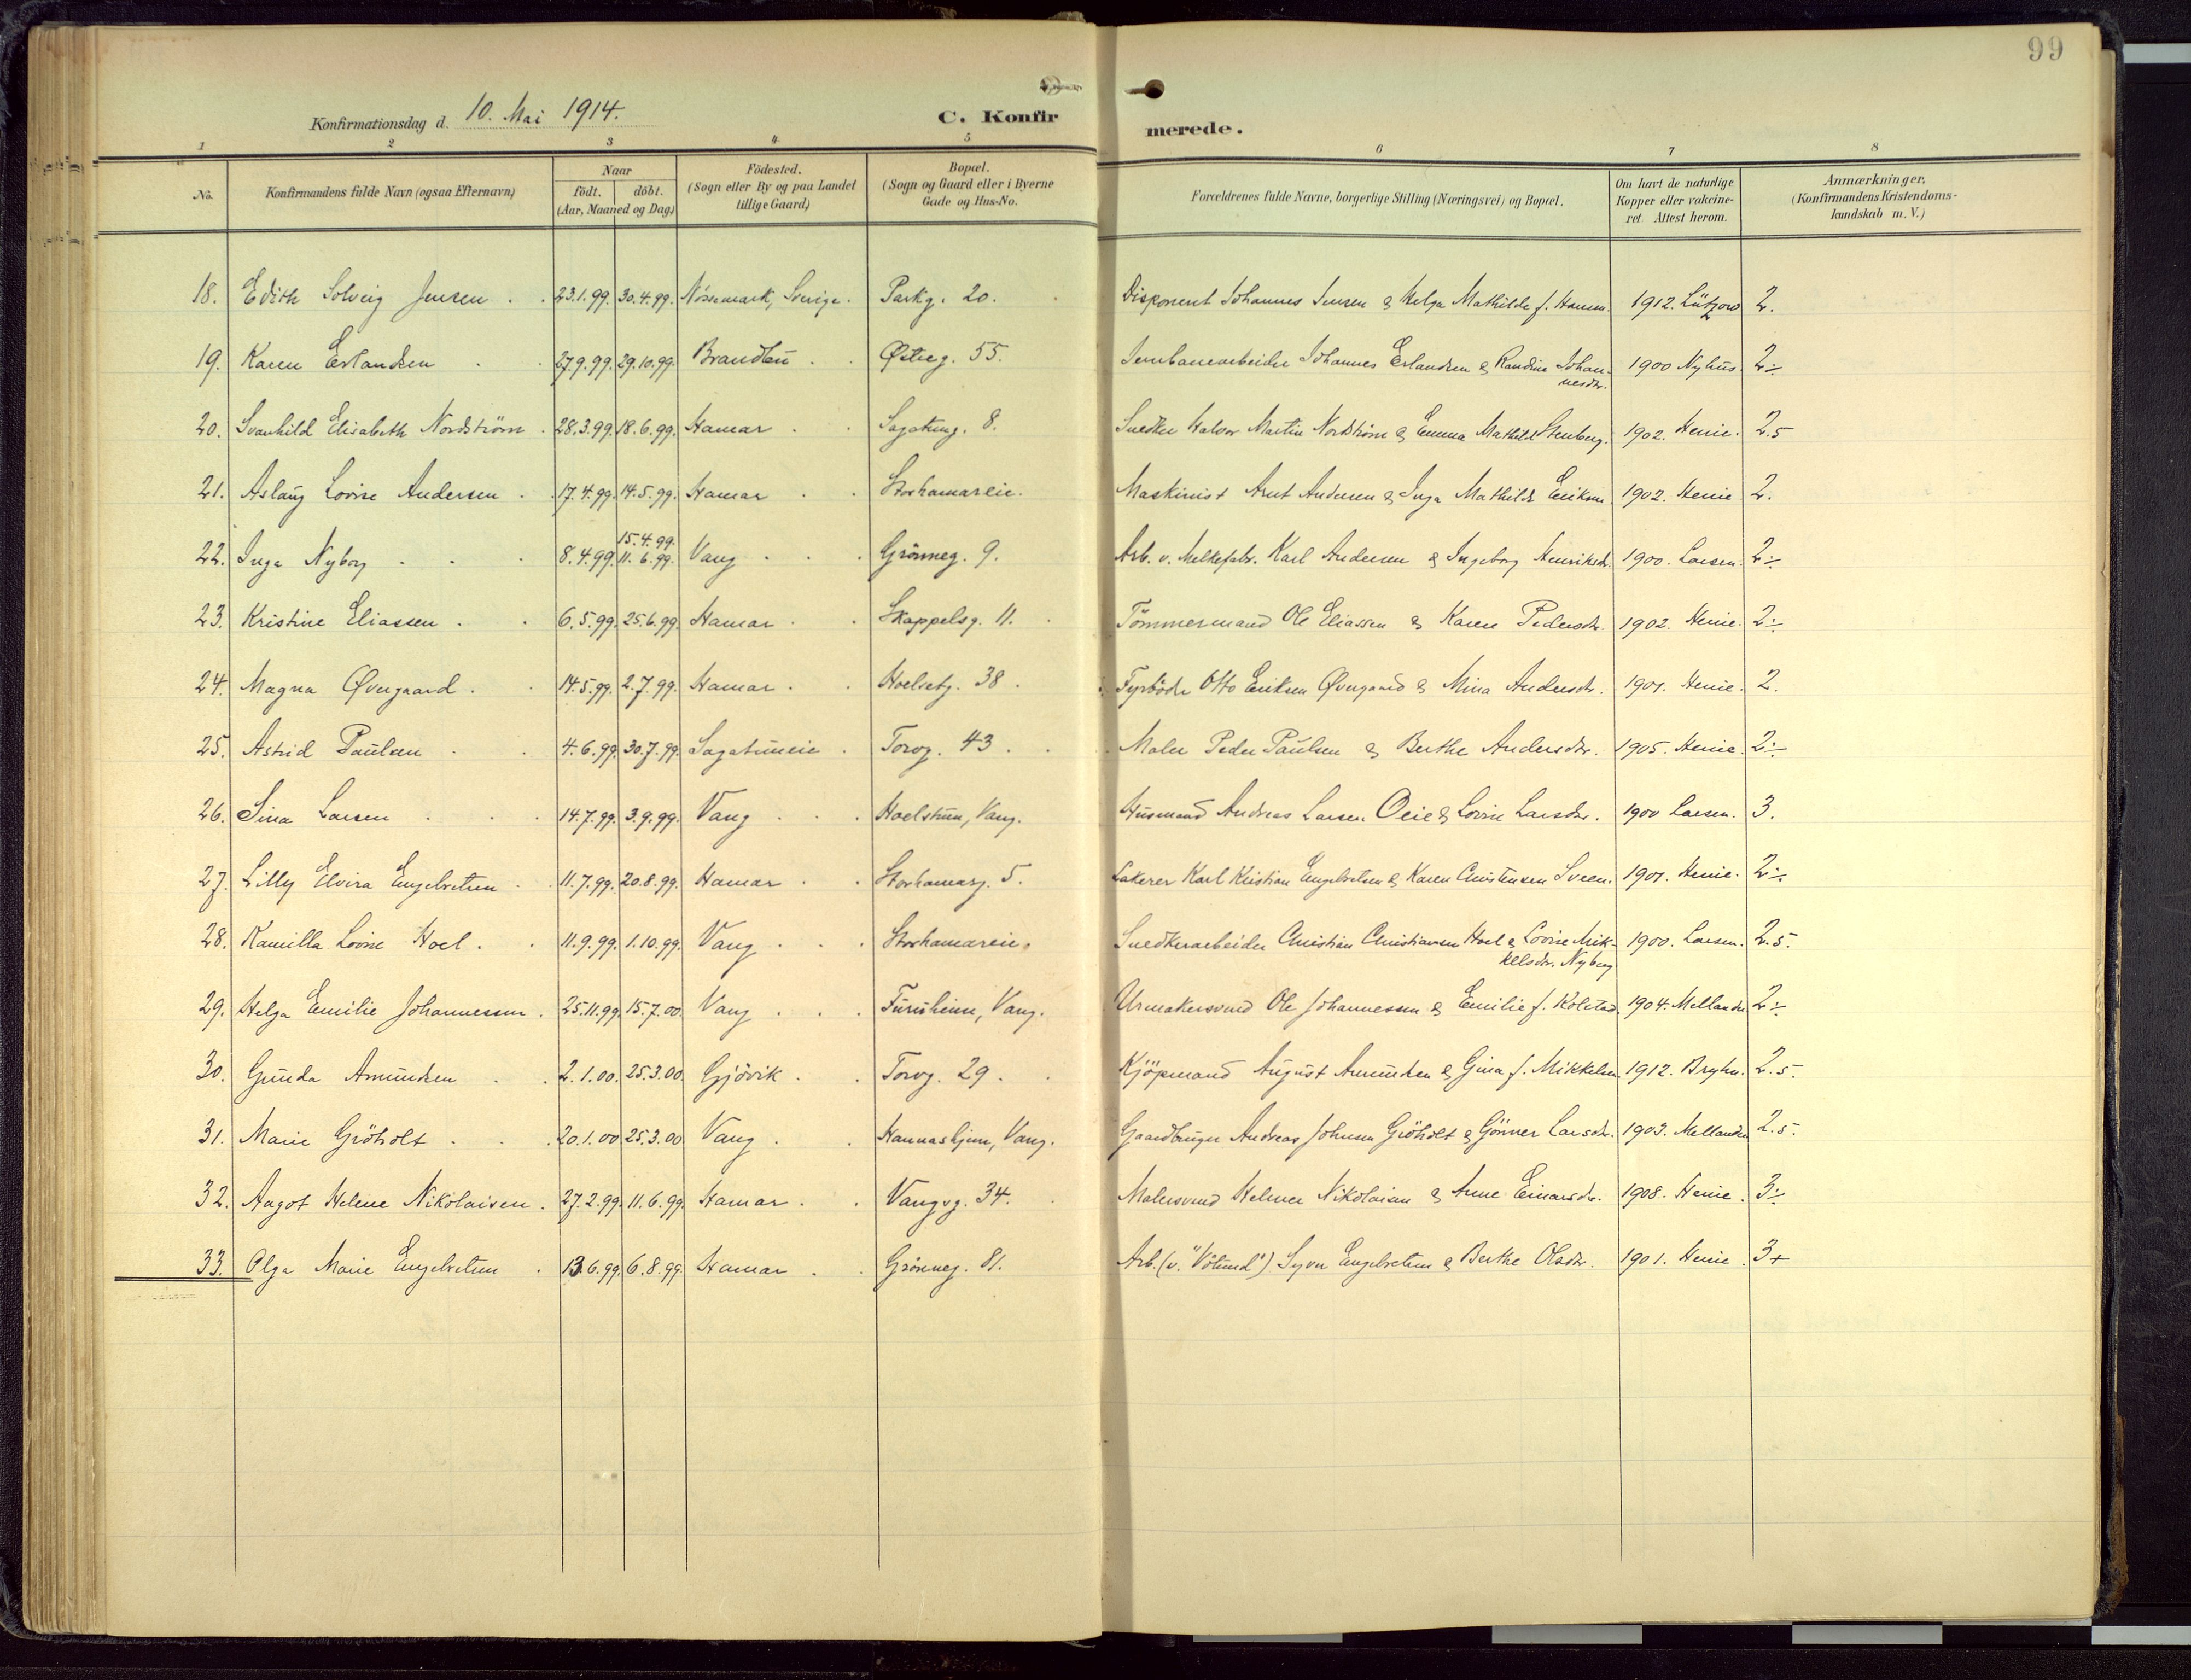 99
Konfirmationsdag d. 10. Mai 1914. C. Konfir merede.
1 2 3 4 5 6 7 8
No. Konfirmandens fulde Navn (ogsaa Efternavn) Naar født. døbt. (Aar, Maaned og Dag.) Födested. (Sogn eller By og paa Landet tillige Gaard) Bopæl. (Sogn og Gaard eller i Byerne Gade og Hus-No. Forældrenes fulde Navne, borgerlige Stilling (Næringsvei) og Bopæl. Om havt de naturlige Kopper eller vakcineret Attest herom. Anmærkninger. (Konfirmandens Kristendomskundskab m. V.)
18. Edith Solveig Jensen 23.1.99. 30.4.99. Nössemark, Sverige. Parkg. 20. Disponent Johannes Jensen & Helga Mathilde f. Hansen. 1912. Lützow 2.
19. Karen Erlandsen 27.9.99. 29.10.99. Brandbu Østreg. 55. Jernbanearbeider Johannes Erlandsen & Randine Johannesdr. 1900 Nyhus. 2÷
20. Svanhild Elisabeth Nordström 28.3.99. 18.6.99. Hamar Sagatung. 8. Snedker Halvor Martin Nordström & Emma Mathild Stenberg. 1902. Henie. 2.5
21. Aslaug Lovise Andersen 17.4.99. 14.5.99. Hamar Storhamareie. Maskinist Arnt Andersen & Inga Mathilde Eriksen 1902. Henie 2.
22. Inga Nyborg 8.4.99. 15.4.99. 11.6.99. Vang Grönneg. 9. Arb. v. Melkefabr. Karl Andersen & Ingeborg Henriksdr. 1900. Larsen. 2÷
23. Kristine Eliassen 6.5.99. 25.6.99. Hamar Skappelsg. 11. Tömmermand Ole Eliassen & Karen Pedersdr. 1902. Henie. 2÷
24. Magna Øvergaard 14.5.99. 2.7.99. Hamar Hoelsetg. 38. Fyrböder Otto Eriksen Øvergaard & Mina Andersdr. 1901. Henie. 2.
25. Astrid Paulsen 4.6.99. 30.7.99. Sagatuneie Torvg. 43. Maler Peder Paulsen & Berthe Andersdr. 1905. Henie. 2÷
26. Sina Larsen 14.7.99. 3.9.99. Vang Hoelstun, Vang. Husmand Andreas Larsen Oeie & Lovise Larsdr. 1900 Larsen. 3.
27. Lilly Elvira Engebretsen 11.7.99. 20.8.99. Hamar Storhamarg. 5. Lakerer Karl Kristian Engebretsen & Karen Christensen Sveen. 1901. Henie. 2÷
28. Kamilla Lovise Hoel 11.9.99. 1.10.99. Vang Storhamareie. Snedkerarbeider Christian Christiansen Hoel & Lovise Mikkelsdr. Nyberg 1900. Larsen. 2.5.
29. Helga Emilie Johannessen 25.11.99. 15.7.00. Vang Furuheim, Vang. Urmakersvend Ole Johannessen & Emilie f. Kolstad. 1904. Mellander 2÷
30. Gunda Amundsen 2.1.00. 25.3.00. Gjövik Torvg. 29. Kjöpmand August Amundsen & Gina f. Mikkelsen. 1912. Bryhn. 2.5.
31. Marie Gröholt 20.1.00 25.3.00 Vang Vang. Gaardbruger Andreas Johnsen Gröholt & Gönner Larsdr. 1903. Mellander 2.5.
32. Aagot Helene Nikolaisen 27.2.99. 11.6.99. Hamar Vangvg. 34. Malersvend Helmer Nikolaisen & Anne Einarsdr. 1908. Henie. 3÷
33. Olga Marie Engebretsen 13.6.99. 6.8.99. Hamar Grönneg. 81. Arb. (v. "Völund") Syver Engebretsen & Berthe Olsdr. 1901. Henie. 3+